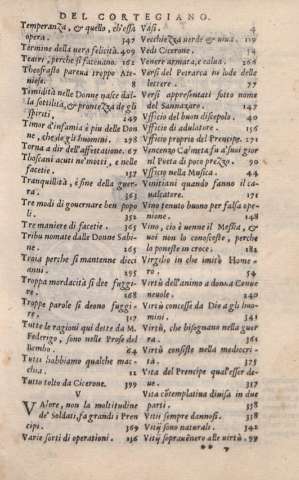 DEL CORTEGIANO.
Temperanza, & quello, ch'essa
opera. 347
Termine della vera felicità. 409
Teatri, perche si faceuano. 162
Theofrasto pareua troppo Ate-
niese. 8
Timidità nelle Donne nasce dal-
la sottilità, & prontezza de gli
spiriti, 249
Timor d'infamia è piu delle Don
ne, che de gli huomini. 298
Torna a dir dell'affettatione. 67
Thoscani acuti ne'motti, e nelle
facetie. 157
Tranquillità, è fine della guer
ra. 363
Tre modi di gouernare ben popo
li. 352
Tre maniere di facetie. 365
Tribu nomate dalle Donne Sabi
ne. 265
Troia perche si mantenne dieci
anni. 295
Troppa mordacità si dee fuggi
re. 317
Troppe parole si deono fuggi
re. 317
Tutte le ragioni qui dette da M.
Federigo, sono nelle Prose del
Bembo. 64
Tutti habbiamo qualche mac-
chia. 12
Tutto tolto da Cicerone. 399
V
VAlore, non la moltitudine
de'Soldati, fa grandi i Pren
cipi. 369
Varie sorti di operationi. 136
Vasi. 4
Vecchiezza uerde & uiua. 119
Vedi Cicerone. 54
Venere armata, e calua. 266
Versi del Petrarca in lode delle
lettere. 77
Versi appresentati sotto nome
del Sannazaro. 147
Vfficio del buon discepolo. 40
Vfficio di adulatore. 136
Vfficio proprio del Prencipe. 271
Vincenzo Calmeta, fu a'suoi gior
ni Poeta di poco prezzo. 90
Vfficio nella Musica. 44
Vinitiani quando fanno il ca-
ualcatore. 171
Vino tenuto buono per falsa ope
nione. 148
Vino, cio è uenne il Messia, &
uoi non lo conosceste, perche
lo poneste in croce. 184
Virgilio in che imitò Home-
ro. 54
Virtù dell'animo a donna Conue
neuole. 240
Virtù concesse da Dio a gli huo-
mini. 341
Virtù, che bisognano nella guer
ra. 361
Virtù consiste nella mediocri-
tà. 375
Vita del Prencipe qual'esser de-
ue. 317
Vita cōtemplatina diuisa in due
parti. 358
Vitii sempre dannosi. 338
Vitij sono naturali. 342
Vitij soprauēnero alle uirtù. 99
** 7